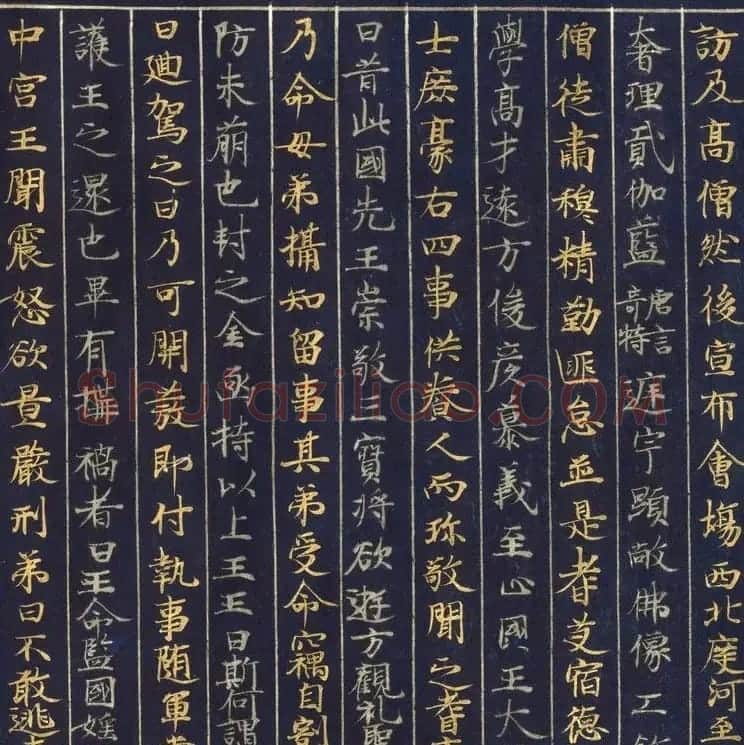 訪及髙僧然後宣布會塲西北度河至
大奢理貳伽藍唐言奇特庭宇顯敞佛像工飾
僧徒肅穆精勤匪怠並是耆艾宿德
學髙才遠方俊彥慕義至止國王大
士庶豪右四事供養人而弥敬聞之耆
曰昔此國先王崇敬三寶將欲遊方觀礼聖
乃命母弟攝知留事其弟受命竊自割
防未萌也封之金函持以上王王曰斯何謂
曰迴駕之日乃可開發即付執事随軍
護王之還也果有構禍者曰王命監國婬
中宮王聞震怒欲置嚴刑弟曰不敢逃
Shufaziliao.COM